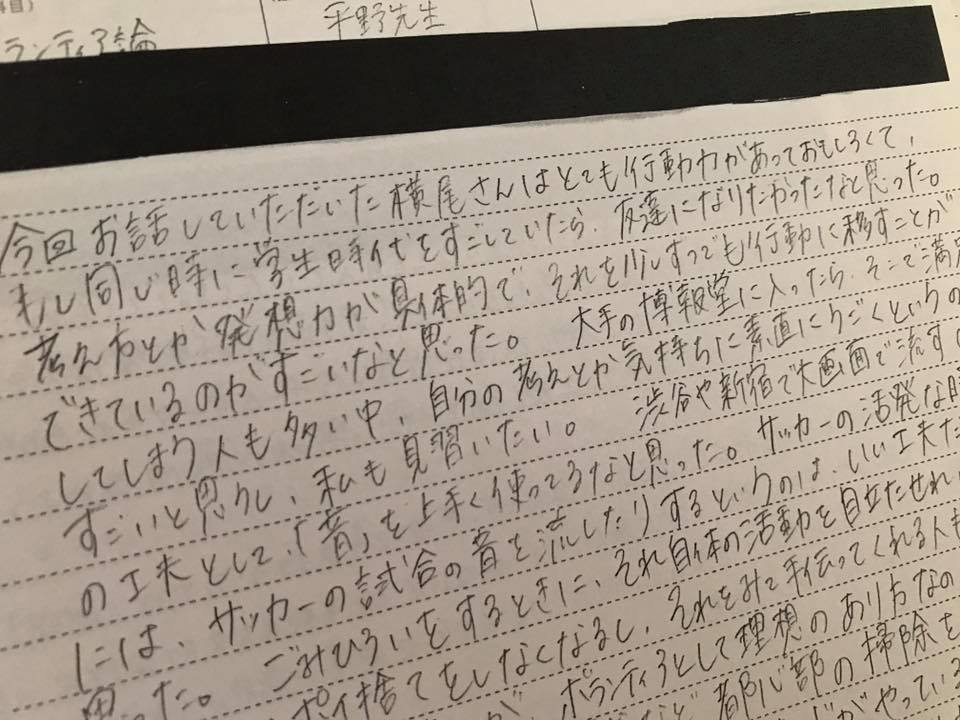 目)
ランティア論
平野先生
今回お話していただいた横尾さんはとても行動力があっておもしろくて、
もし同じ時に学生時代をすごしていたら、友達になりたかったなと思った。
考え方とか発想力が具体的で、それを少しずつでも行動に移すことが
できているのがすごいなと思った。 大手の博報堂に入ったら、そこで満足
してしまう人も多い中、自分の考えとか気持ちに素直にうごくというの
すごいと思うし、私も見習いたい。 渋谷や新宿で大画面で流す
の工夫として、「音」を上手く使ってるなと思った。サッカーの活発な時
には、サッカーの試合の音を流したりするというのは、いい工夫だ
思った。 ごみひろいをするときに、それ自体の活動を目立たせれ
ポイ捨てをしなくなるし、それをみて手伝ってくれる人も
が、ボランティアとして理想のあり方なの
など都心部の掃除を
がやっている